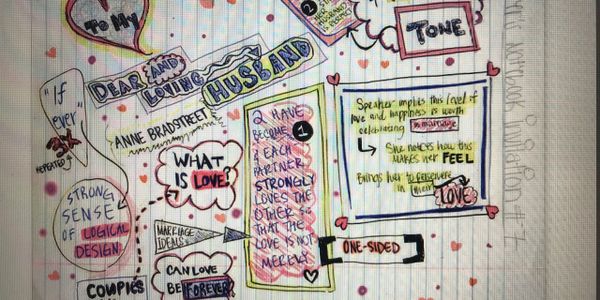 To My
DEAR AND
LOVING
HUSBAND
ANNE BRADSTREET
"If
ever"
3X
REPEATED
STRONG
SENSE
OF LOGICAL
DESIGN
WHAT
IS LOVE?
MARRIAGE
IDEALS
CAN LOVE
BE FOREVER
COUPLES
2
TONE
2 HAVE
BECOME 1
& EACH
PARTNER
STRONGLY
LOVES THE
OTHER SO
THAT THE
LOVE IS NOT
MERELY
ONE-SIDED
Speaker implies this level of
love and happiness is worth
celebrating in marriage
She notices how this
MAKES HER FEEL
Brings her to persevere
in their
LOVE
Notebook
# 7